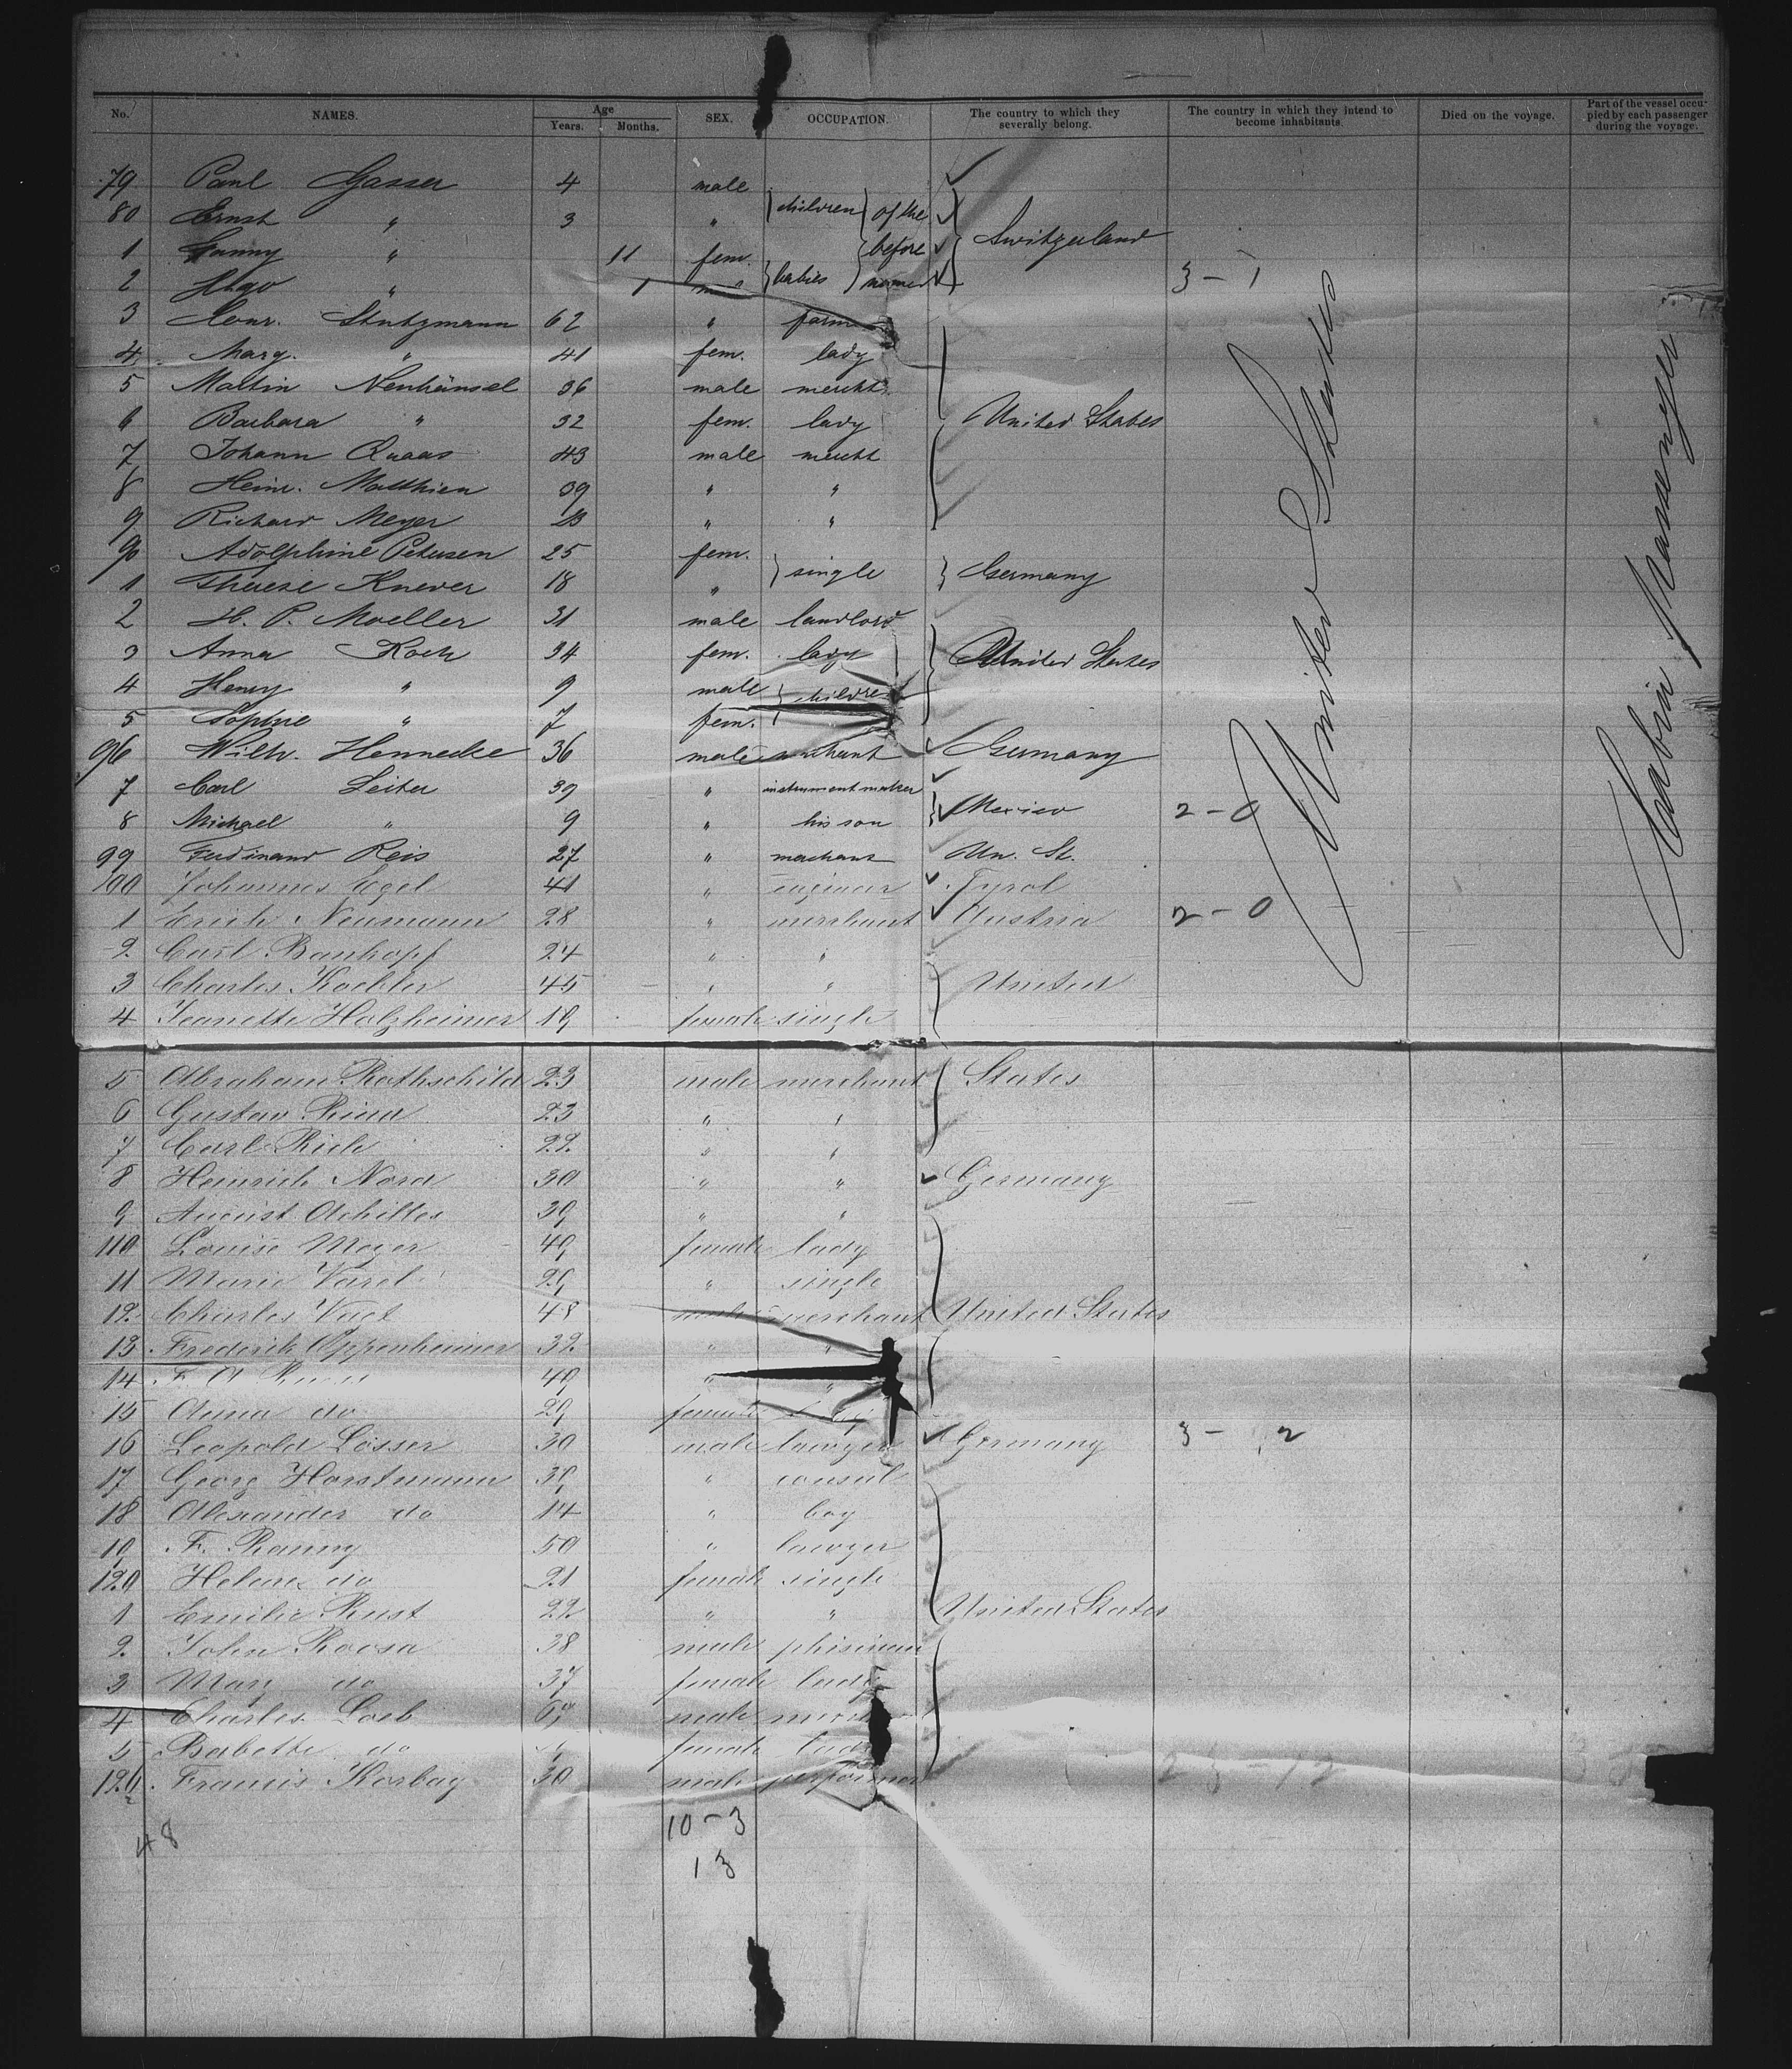 No. NAMES. Age Years. Months. SEX. OCCUPATION. The country to which they severally belong. The country in which they intend to become inhabitants. Died on the voyage. Part of the vessel occupied by each passenger during the voyage.
79 Paul Gasser 4 male
80 Ernst " 3 " children of the
1 Fanny " 11 fem. before Switzerland
2 Hugo " 1 babies named 3 - 1
3 Conr. Stutzmann 62 " farm
4 Marg. " 41 fem. lady
5 Martin Neuhänsel 36 male mercht.
6 Barbara " 32 fem. lady United States
7 Johann Quaas 43 male mercht
8 Heinr. Matthien 39 " "
9 Richard Meyer 23 " "
90 Adolphine Petersen 25 fem.
1 Therese Knever 18 " single Germany
2 H. P. Moeller 31 male landlord
3 Anna Koch 34 fem. lady United States
4 Henry " 9 male children
5 Sophie " 7 fem.
96 Wilh. Hennecke 36 male merchant Germany
7 Carl Leiter 39 " instrument maker
8 Michael " 9 " his son Mexico 2 - 0
99 Ferdinand Reis 27 " merchant Un. St.
100 Johannes Egel 41 " Tyrol
1 Erich Neumann 28 " merchant Austria 2 - 0
2 Carl Bankopf 24 " "
3 Charles Koehler 45 " " United
4 Jeanette Holzheimer 19 female single
5 Abraham Rothschild 23 male merchant States
6 Gustav Rind 23 " "
7 Carl Rich 22 " "
8 Heinrich Nord 30 " " Germany
9 August Achilles 39 " "
110 Louise Meyer 49 female lady
11 Marie Varel 29 " single
12 Charles Vogt 48 male merchant United States
13 Frederik Oppenheimer 32 " "
14 F. A. 49 " "
15 Anna do 29 female
16 Leopold Lösser 30 male lawyer Germany 3 - 2
17 Georg Horstmann 39 " consul
18 Alexander do 14 " boy
19 F. Ranny 50 " lawyer
120 Helene do 21 female single
1 Emilie Rust 22 " " United States
2 John Roosa 38 male phisician
3 Mary do 37 female lady
4 Charles Loeb 67 male
5 Babette do female lady
126 Francis Korbay 30 male performer 23 - 12
48 10 - 3
13
United States
Cabin Passenger